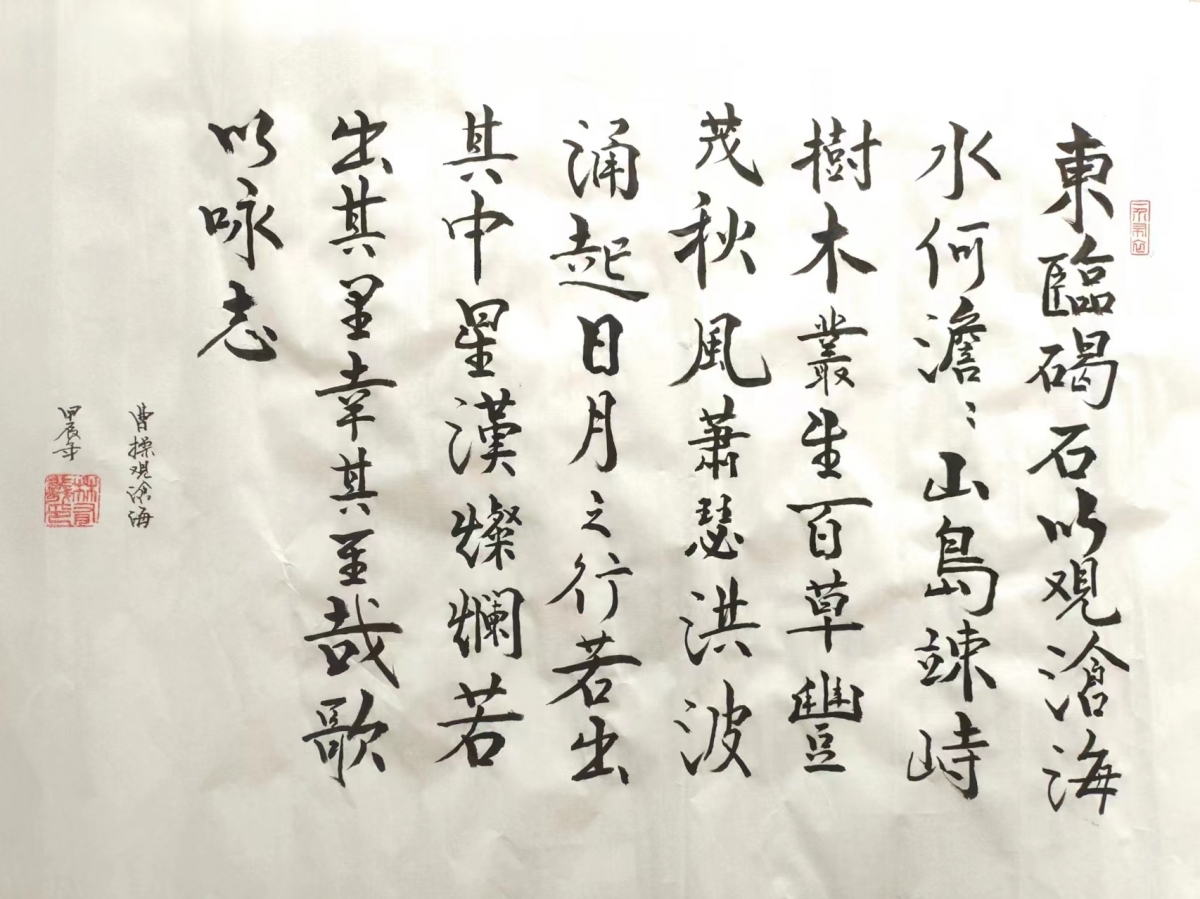 東臨碣石以观滄海
水何澹〻山島竦峙
樹木叢生百草豐
茂秋風蕭瑟洪波
涌起日月之行若出
其中星漢燦爛若
出其里幸其至哉歌
以咏志
曹操观滄海
甲辰年